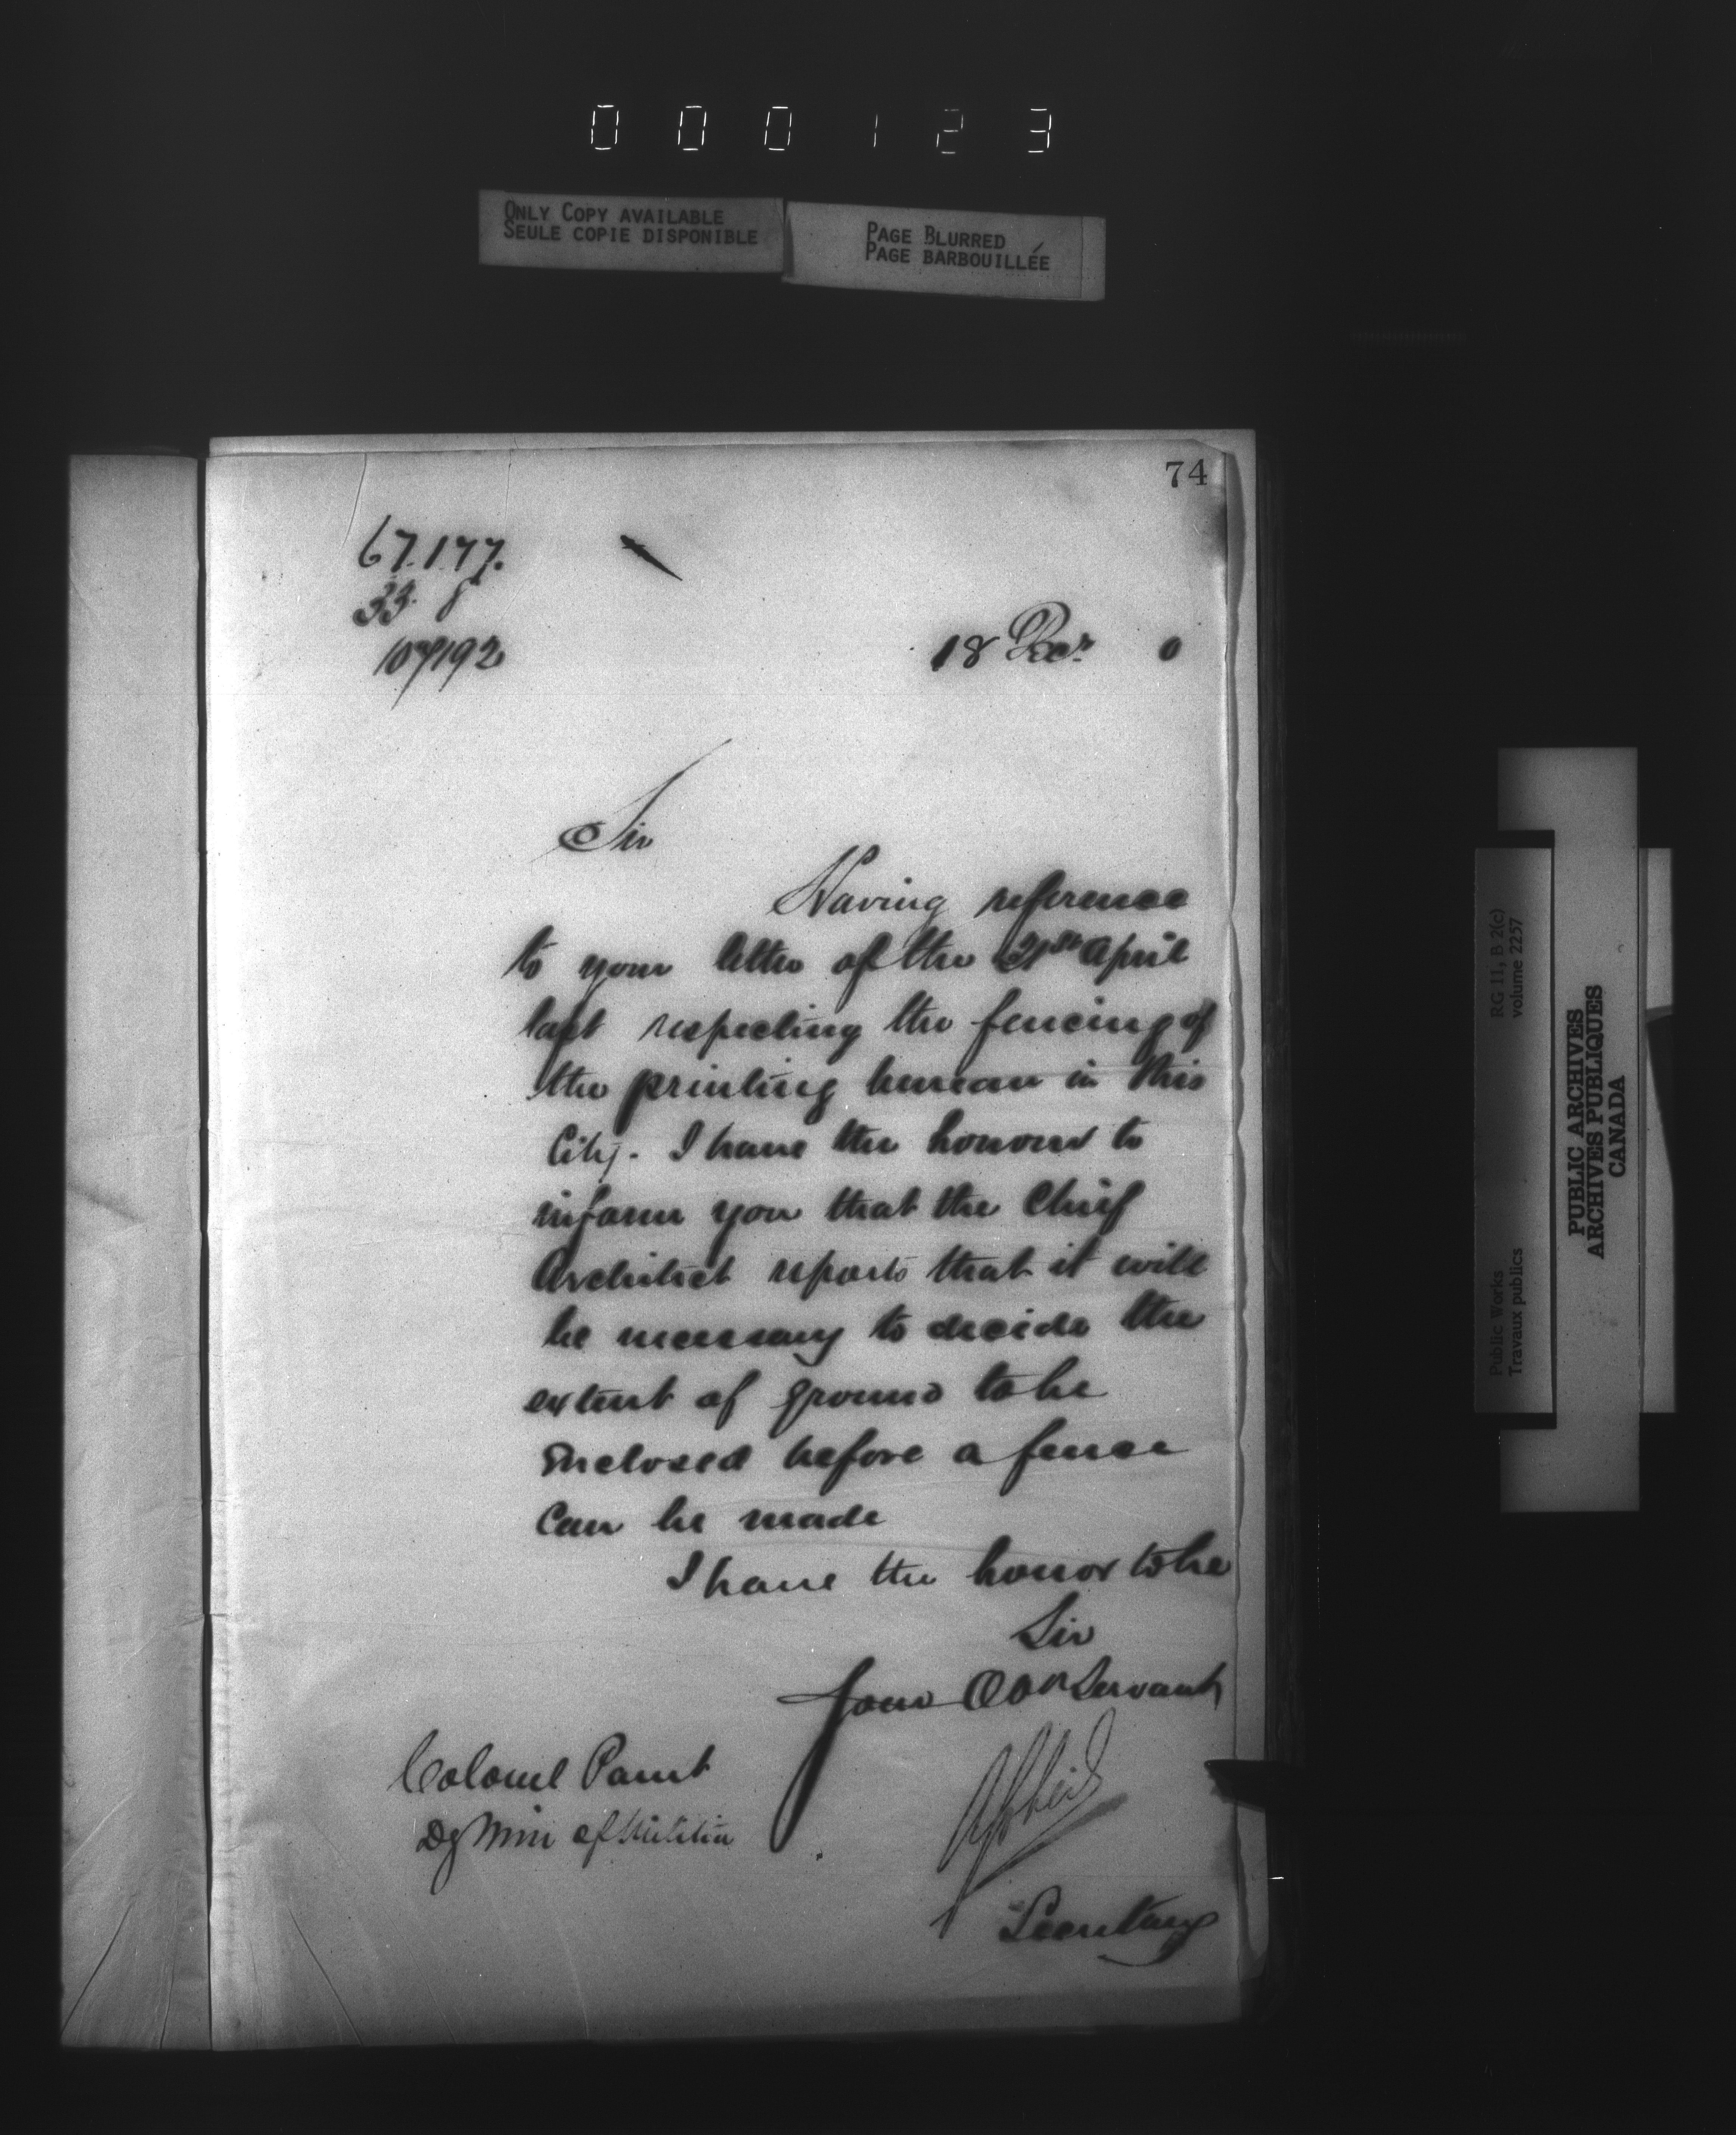 000123
ONLY COPY AVAILABLE
SEULE COPIE DISPONIBLE
PAGE BLURRED
PAGE BARBOUILLÉE
74
67.177.
33. 8
107192
18 Decr. 0
Sir
Having reference
to your letter of the 21st April
last respecting the fencing of
the printing bureau in this
City. I have the honour to
inform you that the Chief
Architect reports that it will
be necessary to decide the
extent of ground to be
Enclosed before a fence
can be made
I have the honor to be
Sir
Your Obt Servant
Colonel Panet
Dy Min of Militia
Secretary
RG 11, B 2(c)
volume 2257
Public Works
Travaux publics
PUBLIC ARCHIVES
ARCHIVES PUBLIQUES
CANADA